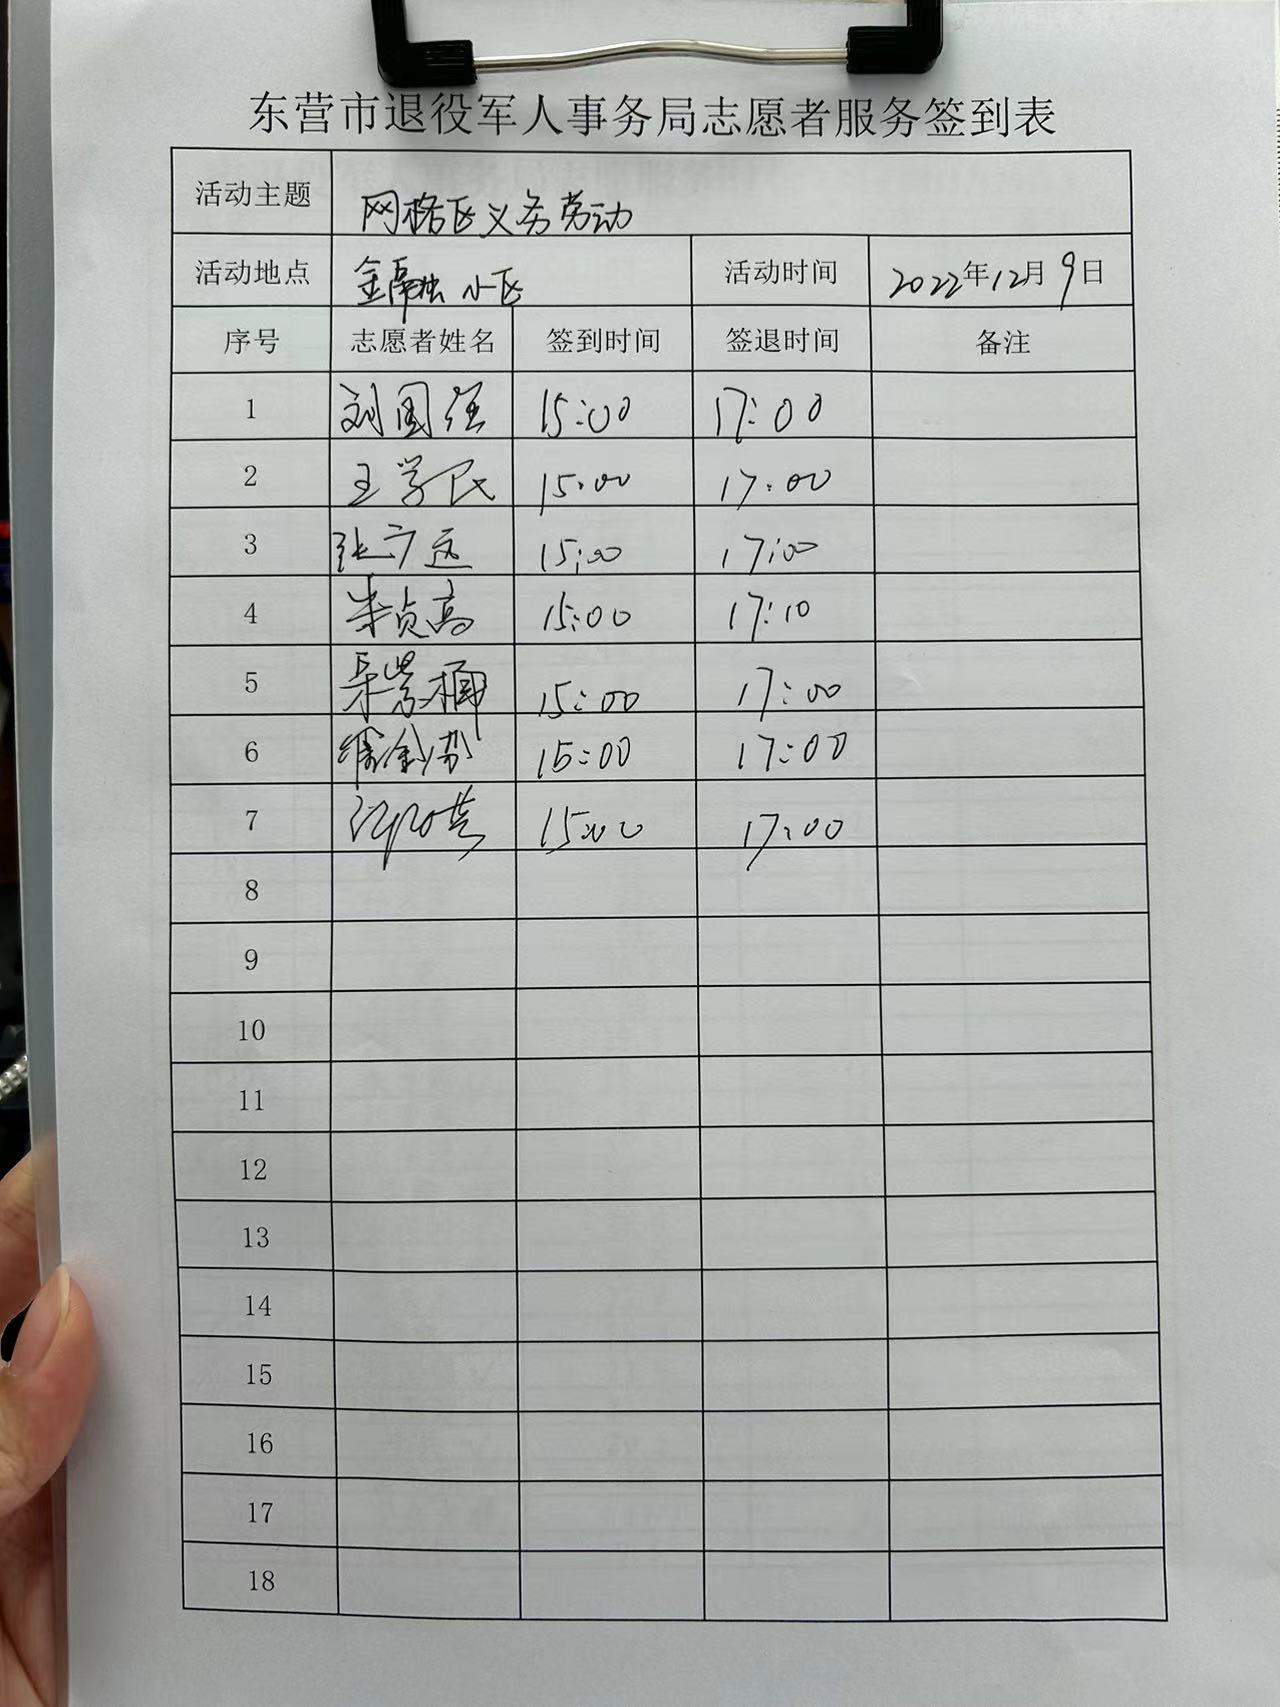 东营市退役军人事务局志愿者服务签到表
活动主题 网格区义务劳动
活动地点 金融小区 活动时间 2022年12月9日
序号 志愿者姓名 签到时间 签退时间 备注
1 刘国强 15:00 17:00
2 王学民 15:00 17:00
3 张广远 15:00 17:00
4 贞高 15:00 17:10
5 15:00 17:00
6 15:00 17:00
7 15:00 17:00
8
9
10
11
12
13
14
15
16
17
18